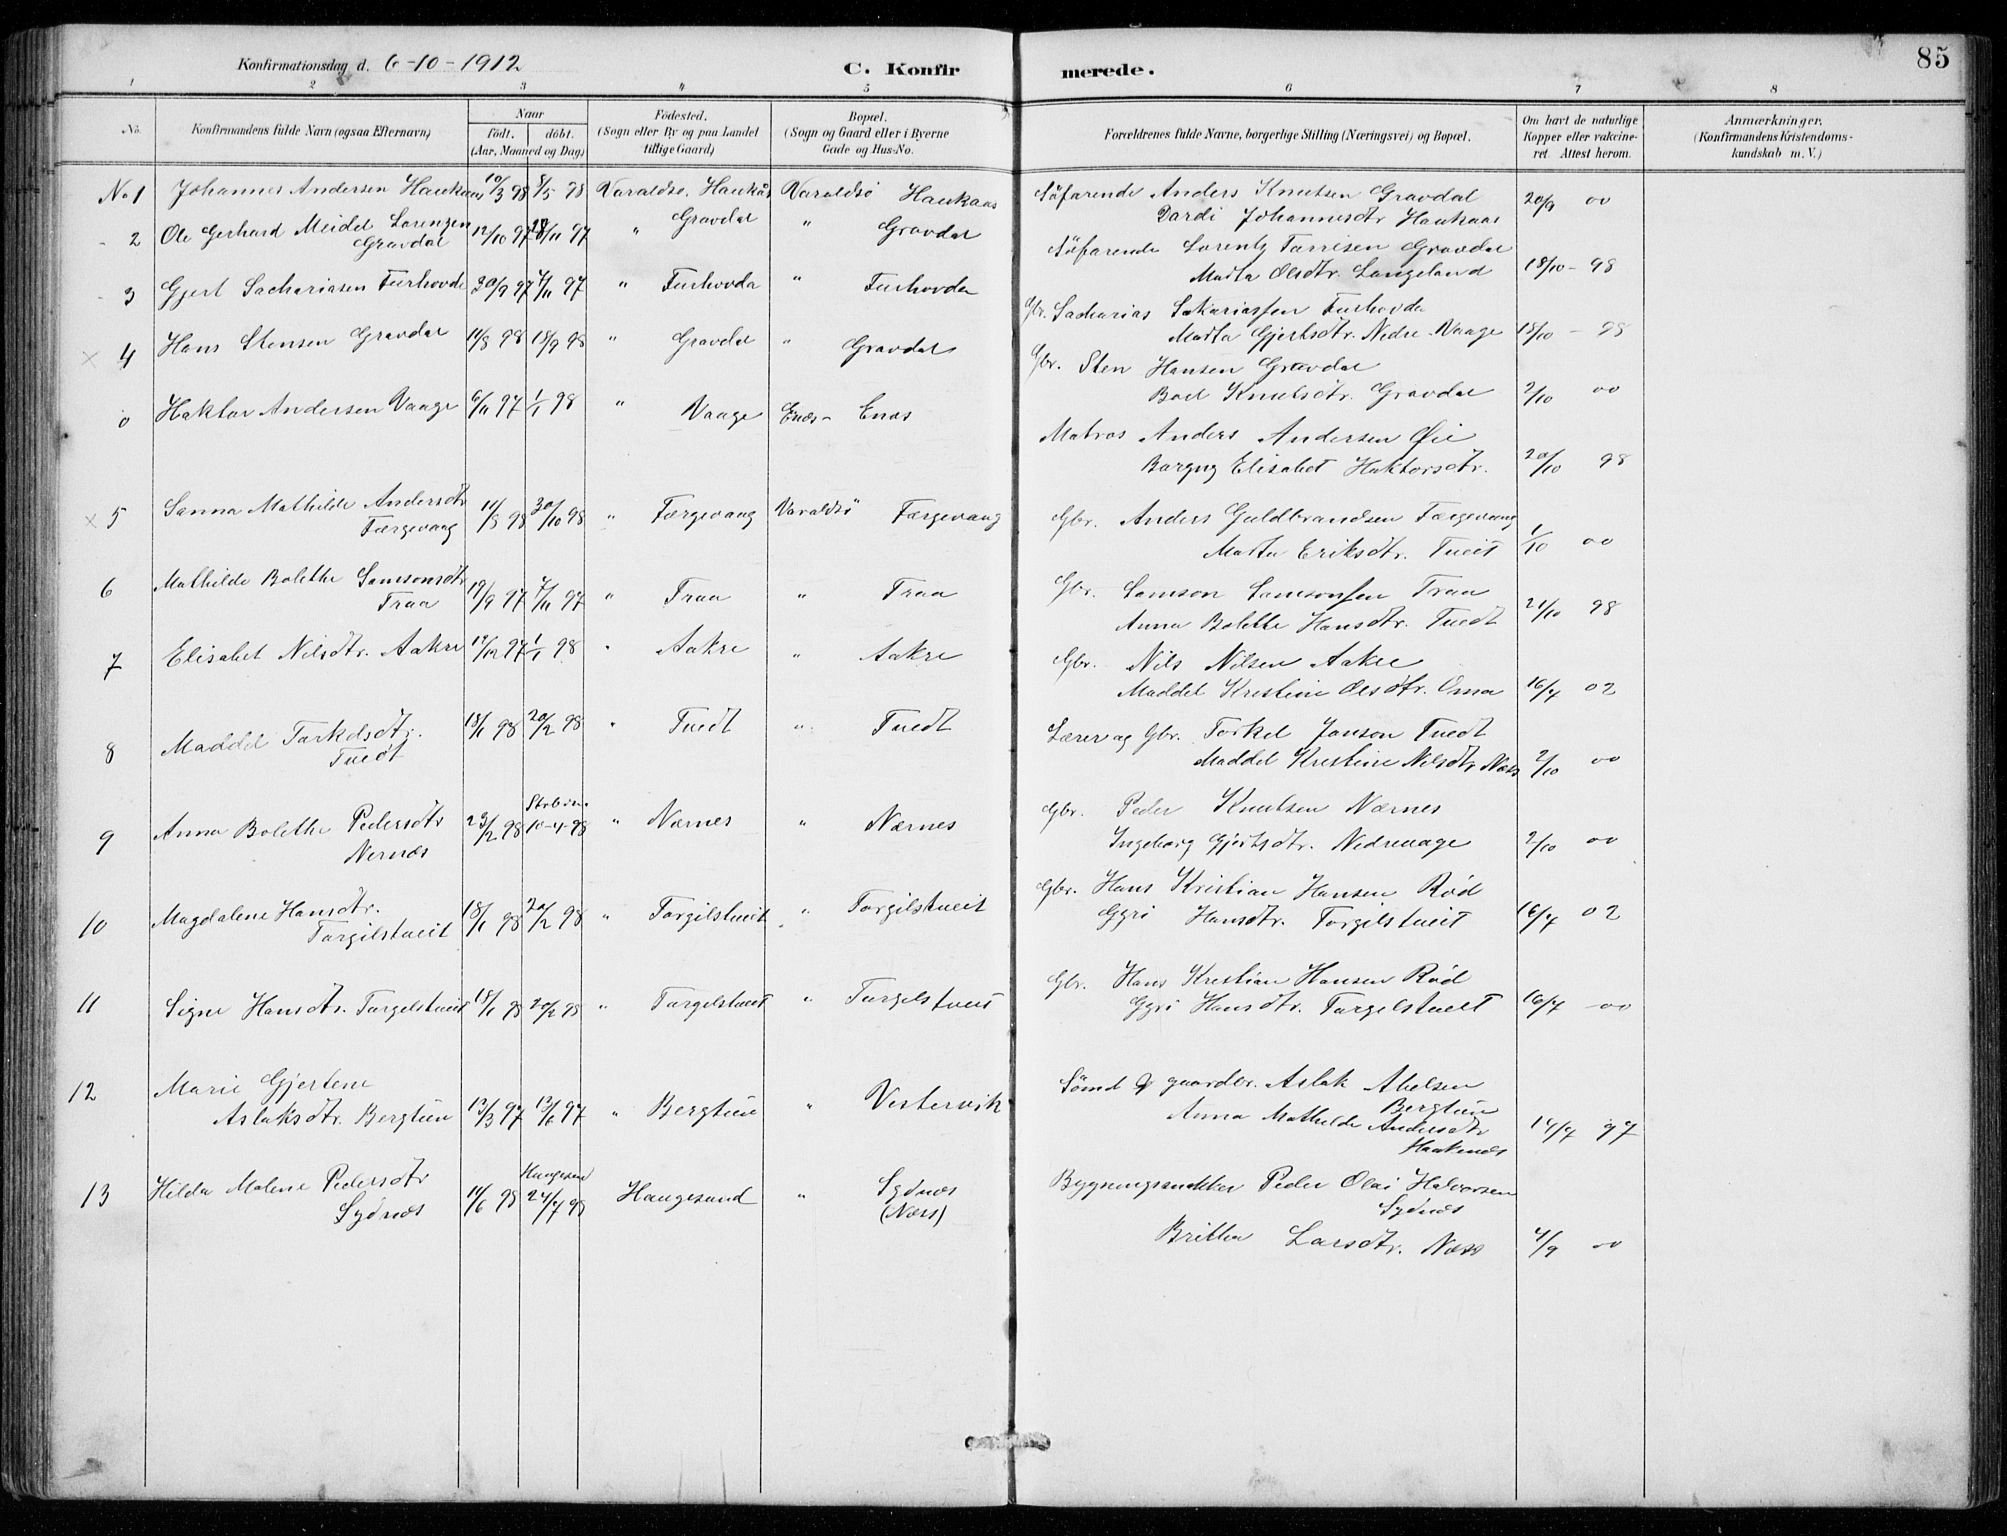 85
Konfirmationsdag d. 6-10-1912
C. Konfirmerede.
1 2 3 4 5 6 7 8
No.
Konfirmandens fulde Navn (ogsaa Efternavn)
Naar
födt. döbt.
(Aar, Maaned og Dag)
Födested.
(Sogn eller By og paa Landet
tillige Gaard)
Bopæl.
(Sogn og Gaard eller i Byerne
Gade og Hus-No.
Forældrenes fulde Navne, borgerlige Stilling (Næringsvei) og Bopæl.
Om havt de naturlige
Kopper eller vakcine-
ret. Attest herom.
Anmærkninger.
(Konfirmandens Kristendoms-
kundskab m. V.)
No 1 Johannes Andersen Haukaas 10/3 98 8/5 98 Varaldsö, Haukås Varaldsö Haukaas Söfarende Anders Knutsen Gravdal 20/9 00
Johannesdtr Haukaas
2 Ole Gerhard Meidel Lorenzen
Gravdal 12/10 97 /11 97 " Gravdal " Gravdal Söfarende Lorentz Gravdal
Marta Olsdtr. Langeland 18/10 - 98
3 Gjert Sachariasen Furhovde 30/9 97 7/11 97 " Furhovda " Furhovda Gbr. Sacharias Sakariassen Furhovda
Marta Gjertsdtr. Nedre-Vaage 18/10 - 98
× 4 Hans Stensen Gravdal 11/8 98 18/9 98 " Gravdal " Gravdal Gbr. Sten Hansen Gravdal
Knutsdtr. Gravdal 2/10 00
0 Haktor Andersen Vaage 6/11 97 1/1 98 " Vaage Enæs - Enæs Matros Anders Andersen Øie
Elisabet Haktorsdtr. 20/10 98
× 5 Sanna Mathilde Andersdtr
Færgevaag 11/8 98 30/10 98 " Færgevaag Varaldsö Færgevaag Gbr. Anders Guldbrandsen Færgevaag
Marta Eriksdtr. Tveit 1/10 00
6 Mathilde Bolethe Samsonsdtr
Traa 19/9 97 7/11 97 " Traa " Traa Gbr. Samson Samsonsen Traa
Anna Bolette Hansdtr. Tvedt 21/10 98
7 Elisabet Nilsdtr. Aakre 19/12 97 1/1 98 " Aakre " Aakre Gbr. Nils Nilsen Aakre
Maddel Kristine Olsdtr. Oma 16/7 02
8 Maddel Tarkelsdtr.
Tvedt 18/1 98 20/2 98 " Tvedt " Tvedt Lærer og Gbr. Torkel Janson Tvedt
Maddel Kristine Nilsdtr Næss 2/10 00
9 Anna Bolethe Pedersdtr
Nernæs 23/2 98 10-4-98 " Nærnes " Nærnes Gbr. Peder Knutsen Nærnes
Ingeborg Gjertsdtr. Nedrevaage 2/10 00
10 Magdalene Hansdtr.
Targilstveit 18/1 98 20/2 98 " Torgilstveit " Torgilstveit Gbr. Hans Kristian Hansen Röd
Gyri Hansdtr. Torgilstveit 16/7 02
11 Signe Hansdtr. Targelstveit 18/1 98 20/2 98 " Targelstveit " Targelstveit Gbr. Hans Kristian Hansen Röd
Gyri Hansdtr. Targelstveit 16/7 - 00
12 Marie Gjertine
Aslaksdtr. Bergtun 13/3 97 13/6 97 " Bergtun " Vestervik Sömd & gaardbr. Aslak Abelsen
Bergtun
Anna Mathilde Andersdtr
Haaknæs 14/7 97
13 Hilda Malene Pedersdtr
Sydnæs 11/6 98 Haugesund 24/7 98 Haugesund " Sydnæs
(Næss) Bygningssnekker Peder Olai Halvorsen
Sydnæs
Britha Larsdtr. Næss 4/9 00